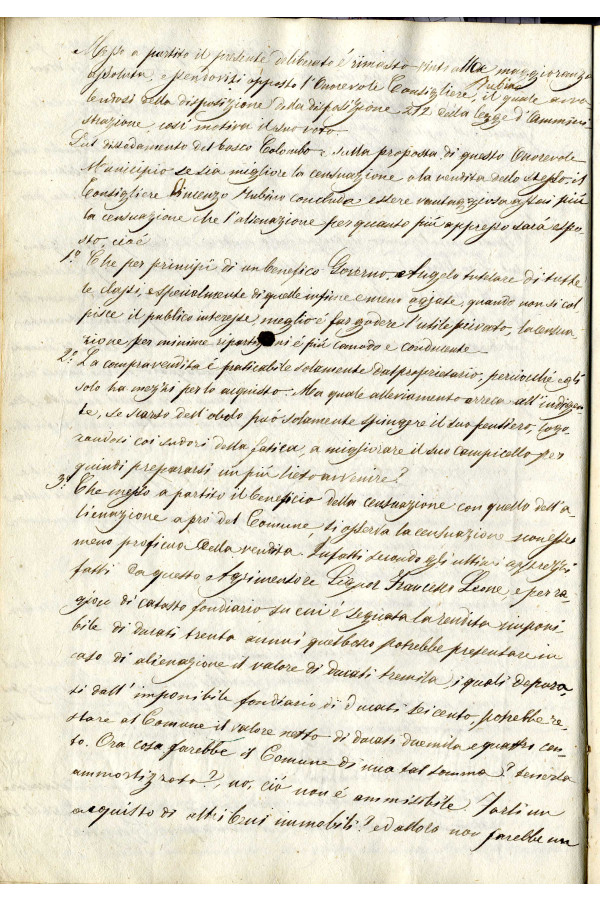 Messo a partito il presente deliberato è rimasto vinto alla maggioranza
assoluta, essendovisi opposto l'Onorevole Consigliere Rubino, il quale avva
lendosi della disposizione della disposizione 212 della legge d'Ammini
strazione, così motiva il suo voto.
Sul dissodamento del bosco Colombo e sulla proposta di questo Onorevole
Municipio se sia migliore la censuazione o la vendita dello stesso, il
Consigliere Vincenzo Rubino concluda essere vantaggiosa assai più
la censuazione che l'alienazione per quanto più appresso sarà espo
sto, cioè
1.º Che per principii di un benefico Governo, Angelo tutelare di tutte
le classi, e specialmente di quelle infime e meno aggiate, quando non si col
pisce il publico interesse, meglio è far godere l'utile privato, la censua
zione per minime ripartizioni è più comodo e conducente.
2.º La compravendita è praticabile solamente dal proprietario, perciocchè egli
solo ha mezzi per lo acquisto. Ma quale alleviamento arreca all'indigen
te, se scarso dell'obolo può solamente spingere il suo pensiero, logo
randosi coi sudori della fatica, a migliorare il suo campicello per
quindi prepararsi un più lieto avvenire?
3.º Che messo a partito il beneficio della censuazione con quello dell'a
lienazione a prò del Comune, si osserva la censuazione non essere
meno proficua della vendita. Infatti secondo gli ultimi apprezzi
fatti da questo Agrimensore Signor Francesco Leone, e per ra
gion di catasto fondiario su cui è segnata la rendita imponi
bile di ducati trenta annui quel bosco potrebbe presentare in
caso di alienazione il valore di ducati tremila, i quali depura
ti dall'imponibile fondiario di ducati seicento, potrebbe re
stare al Comune il valore netto di ducati duemila e quattro cen
to. Ora cosa farebbe il Comune di una tal somma? tenerla
ammortizzata?, no, ciò non è ammissibile. Farsi un
acquisto di altri beni immobili? ed allora non farebbe un